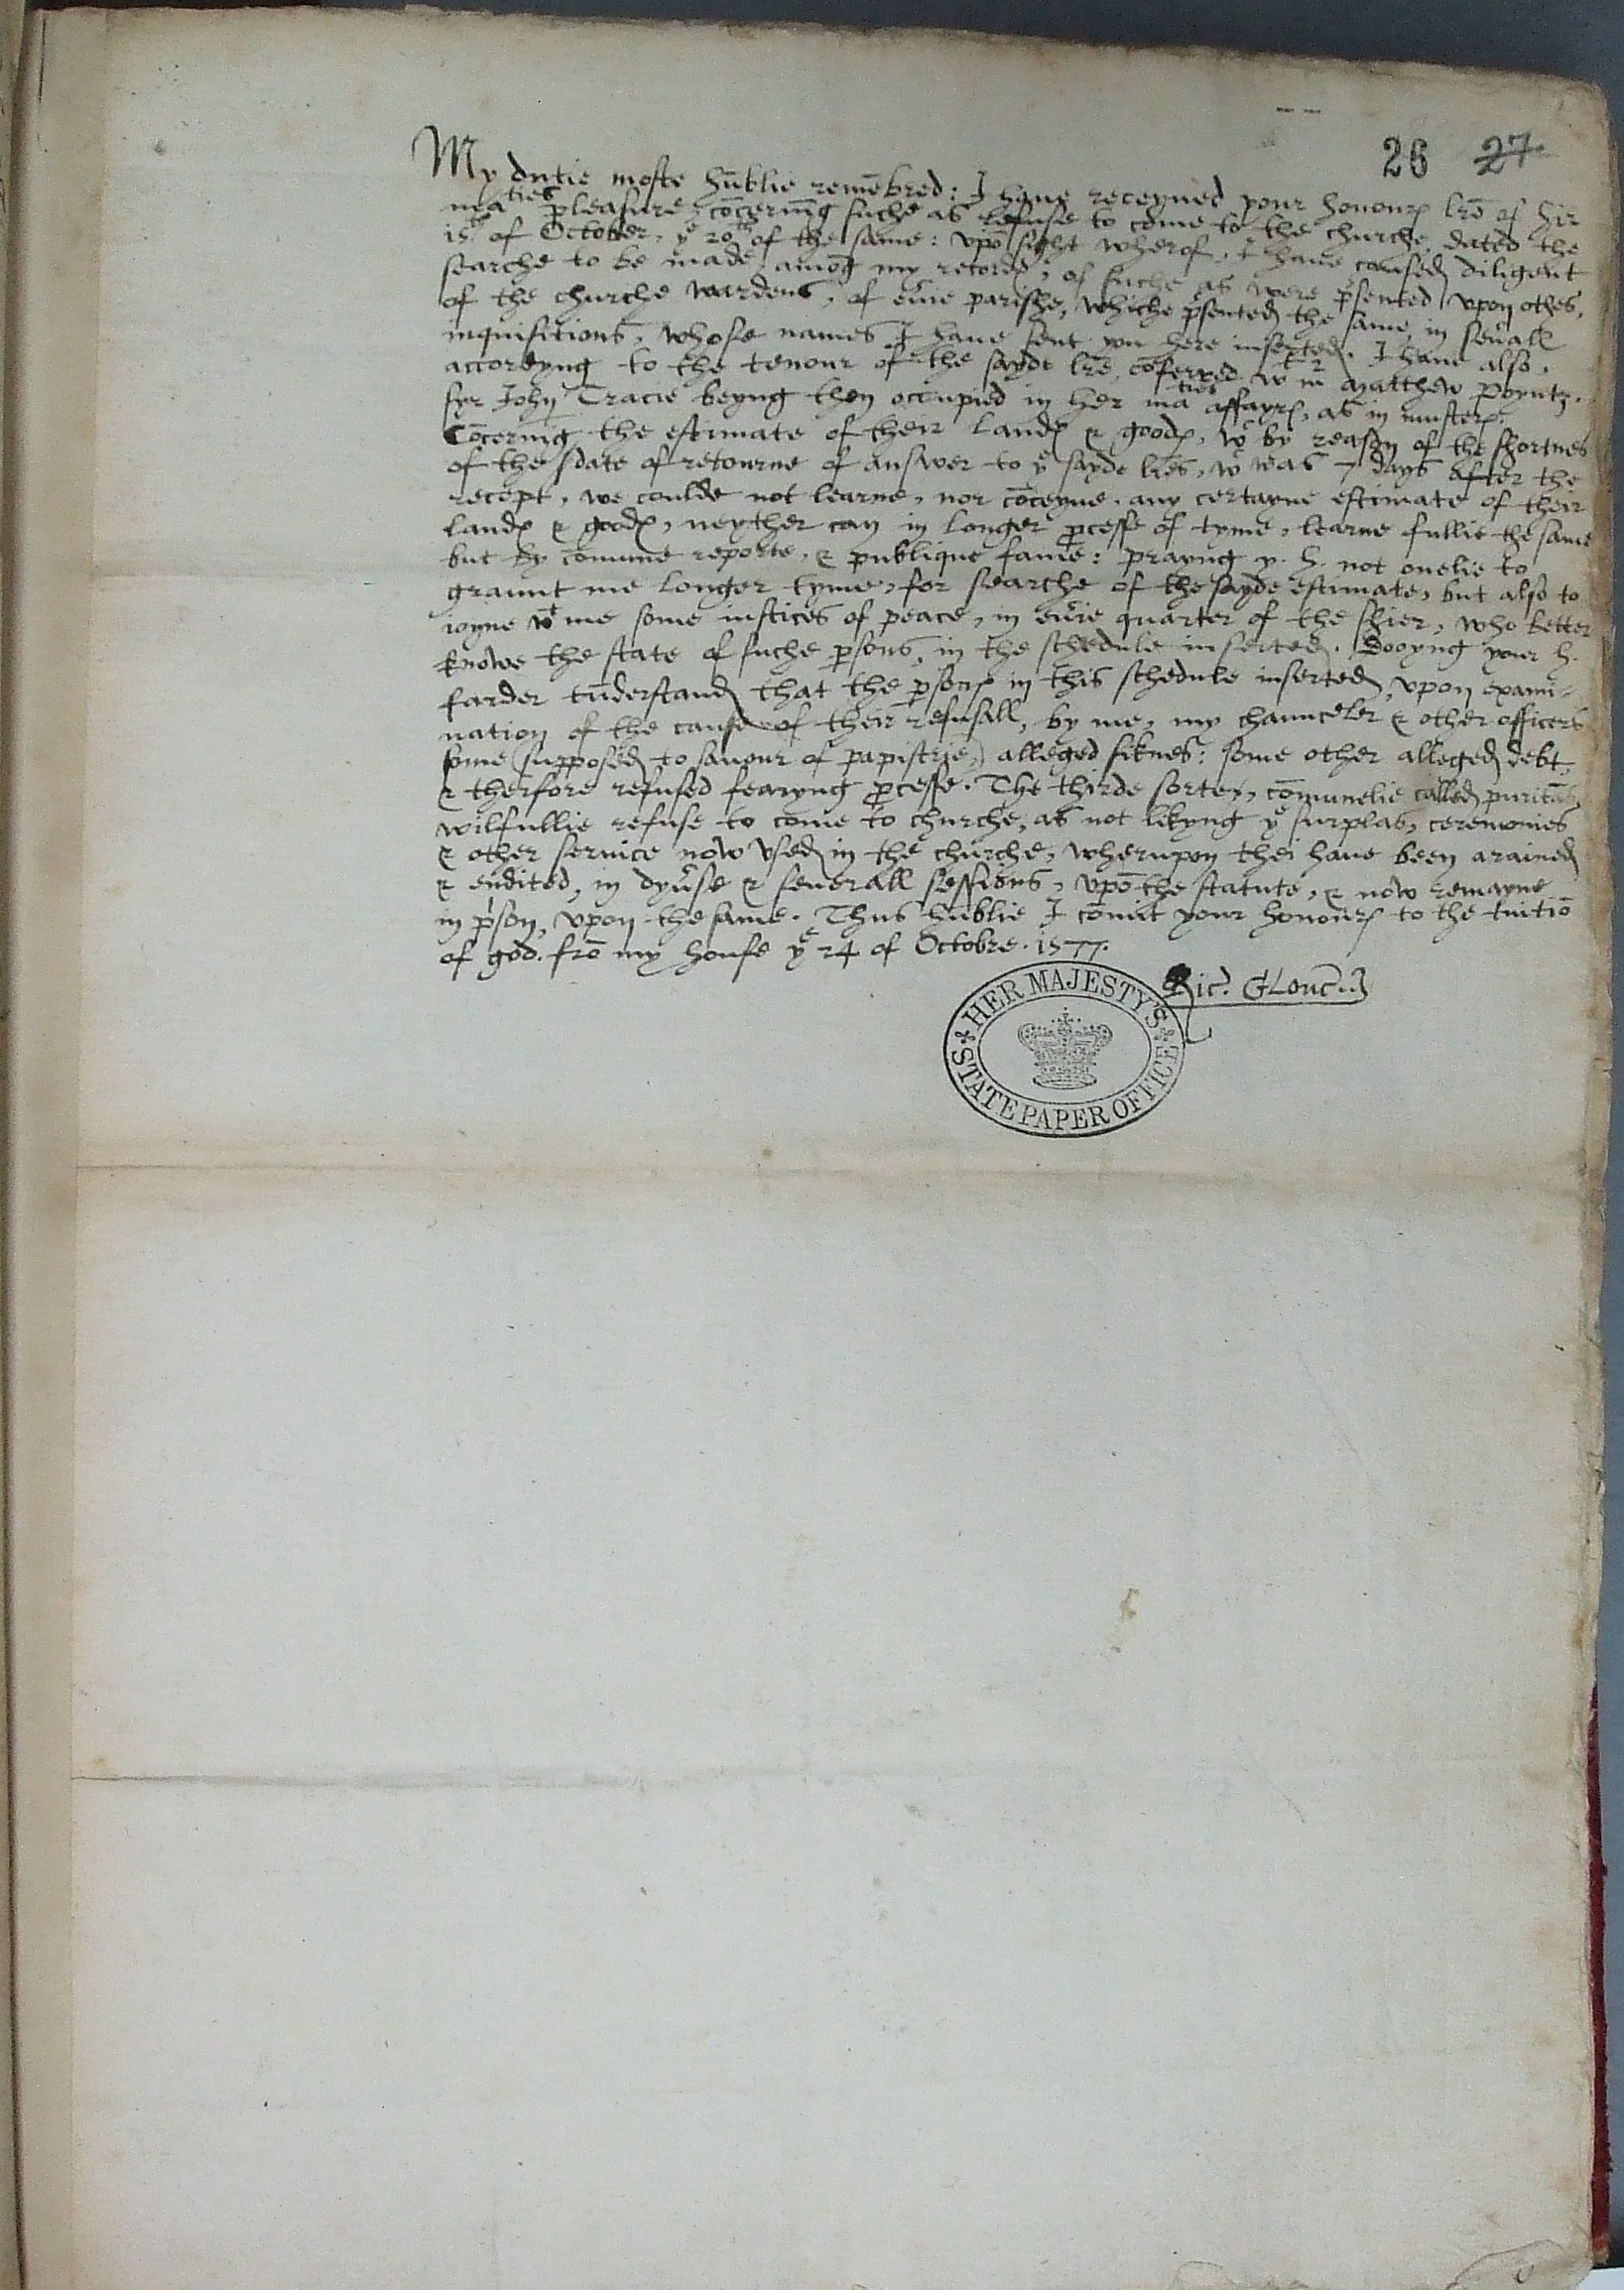 26 27
My dutie moste hūblie remēbred: I haue receyued your honours lrē of hir
maties pleasure, cōcerning suche as refuse to come to the churche, dated the
15th of October, ye 20th of the same: vpō sight wherof, I haue caused diligent
searche to be made, amōg my records, of suche as were psented vpon othes,
of the churche wardens, of euie parishe, whiche psented the same in seuall
inquisitions, whose names I haue sent you here inserted. I haue also,
accordyng to the tenour of the sayde lrē, cōferred wt mr Matthew Poyntz,
syr John Tracie beyng then occupied in her maties affayrs, as in musters.
Cōcernīg the estimate of their lands & goods, wc by reason of the shortnes
of the date of retourne of answer to ye sayde lres, wc was 7 days after the
recept, we coulde not learne, nor cōceyue, any certayne estimate of their
lands & goods, neyther can in longer pcesse of tyme, learne fullie the same
but by cōmune reporte, & publique fame: prayng y. h. not onelie to
graunt me longer tyme, for searche of the sayde estimate, but also to
ioyne wt me some iustices of peace, in euie quarter of the shier, who better
knowe the state of suche psons, in the schedule inserted. Dooyng your h.
farder tūderstand that the psons in this schedule inserted, vpon exami-
nation of the cause of their refusall, by me, my chaunceler & other officers
some (supposed to sauour of papistrie,) alleged siknes: some other alleged debt,
& therfore refused fearyng pcesse. The thirde sorte, cōmunelie called puritās
wilfullie refuse to come to churche, as not likyng ye surplas, ceremonies
& other seruice now vsed in the churche, wherupon thei haue been arained
& endited, in dyuse & seuerall sessions, vpō the statute, & now remayne
in pson, vpon the same. Thus hūblie I cōmit your honours to the tuitiō
of god. frō my house ye 24 of Octobre. 1577.
Ric. Glouc̄.
HER MAJESTY'S
STATE PAPER OFFICE